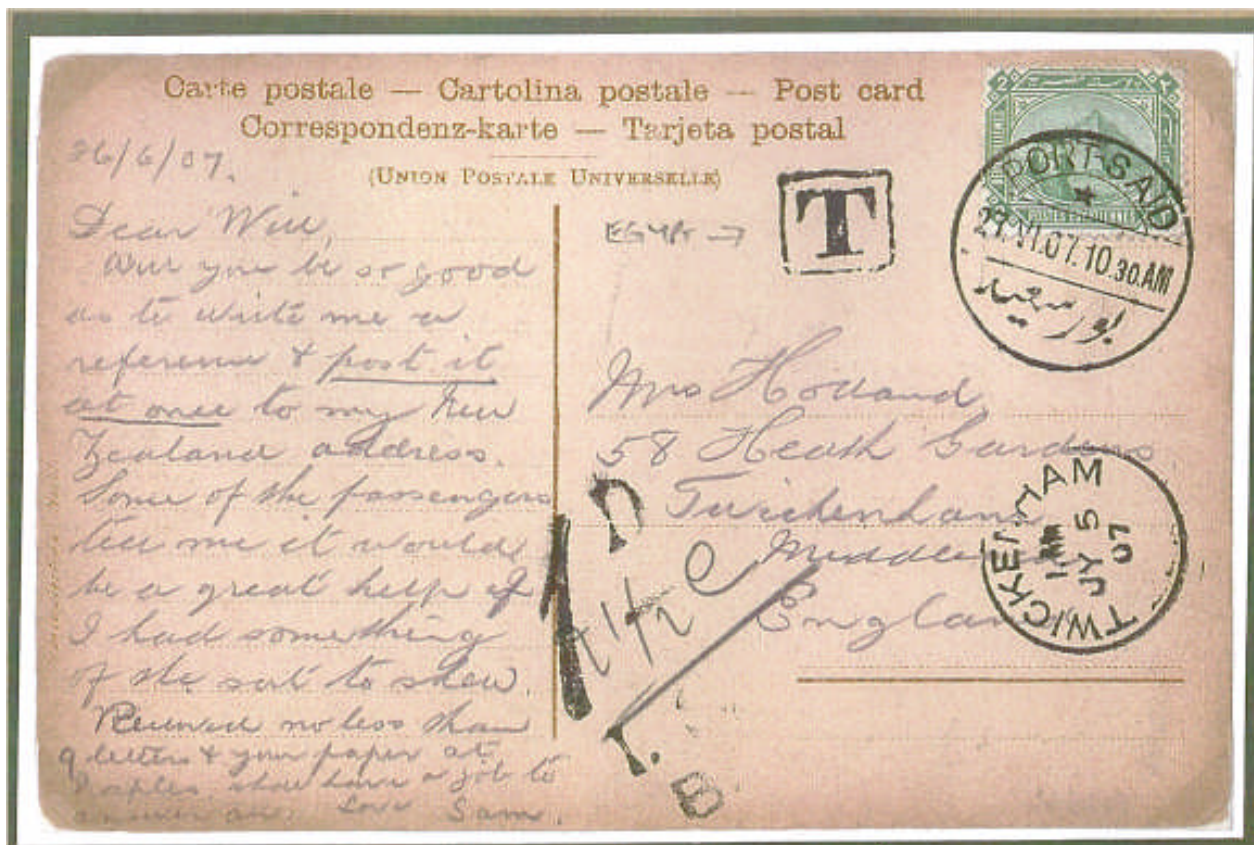 Carte postale — Cartolina postale — Post card
Correspondenz-karte — Tarjeta postal
(UNION POSTALE UNIVERSELLE)
26/6/07.
Dear Will,
Will you be so good
as to write me a
reference & post it
at once to my New
Zealand address.
Some of the passengers
tell me it would
be a great help if
I had something
of the sort to shew.
Received no less than
9 letters & your paper at
Naples, shall have a job to
answer all. Love Sam.
EGYPT
T
PORT-SAID
27.VI.07.10.30.AM
بور سعيد
Mrs Holland
58 Heath Gardens
Twickenham
Middlesex
England
TWICKENHAM
JY 5
07
1D
1½
T.
B